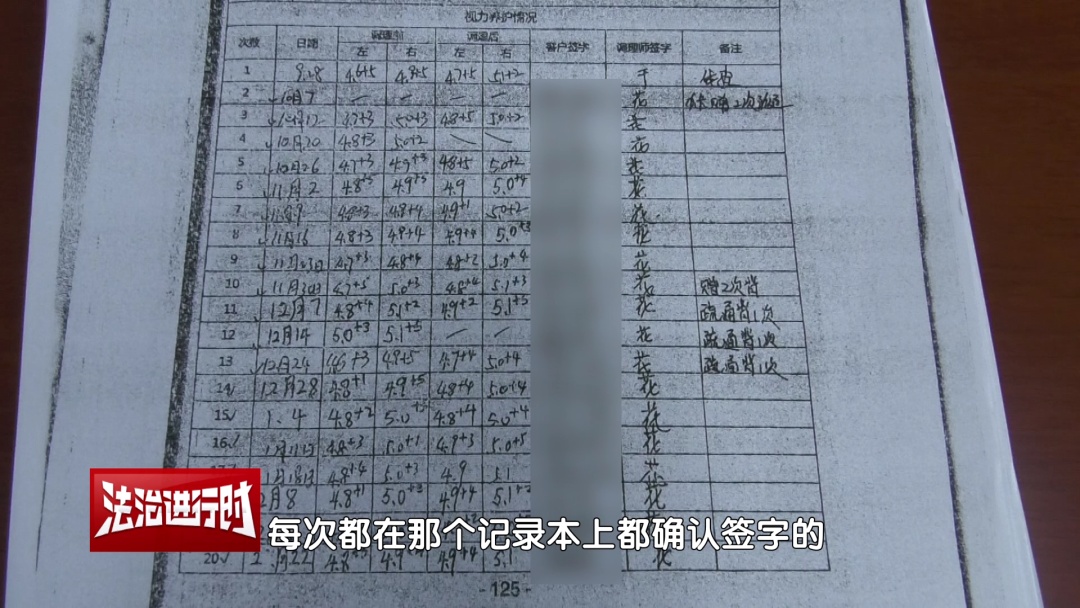 视力养护情况
次数 日期 调理前 调理后 客户签字 调理师签字 备注
左 右 左 右
1 9.28 4.6+5 4.9+5 4.7+5 5.1+2 于
2 10月7 — — — — 花
3 10月12 4.7+3 5.0+3 4.8+5 5.0+2 花
4 10月20 4.8+3 5.0+2 花
5 10月26 4.7+3 4.9+3 4.8+5 5.0+2 花
6 11月2 4.8+5 4.9+5 4.9 5.0+4 花
7 11.8.9 4.8+3 4.8+4 4.9+1 5.0+2 花
8 11月16 4.8+3 4.9+4 4.9+4 5.0+3 花
9 11月23日 4.7+3 4.8+4 4.8+2 5.0+4 花
10 11月30日 4.7+5 5.0+3 4.8+4 5.1+3 花 赠2次背
11 12月7 4.8+4 5.1+2 4.9+2 5.1+5 花 疏通背1次
12 12月14 5.0+3 5.1+5 — — 花 疏通背1次
13 12月24 4.6+3 4.8+5 4.7+4 5.0+4 花 疏通背1次
14√ 12月28 4.8+1 4.9+5 4.8+4 5.0+4 花
15√ 1.4 4.8+2 5.0+5 4.8+4 5.0+4 花
16√ 1月11日 4.8+3 5.0+1 4.9+3 5.0+5 花
1月18日 4.8+4 5.0+3 4.9 5.1 花
月8 4.8+1 5.0+3 4.9+4 5.1+2 花
法治进行时
每次都在那个记录本上都确认签字的
20√ 4.8+5 4.9 4.9+4 5.1 花
- 125 -